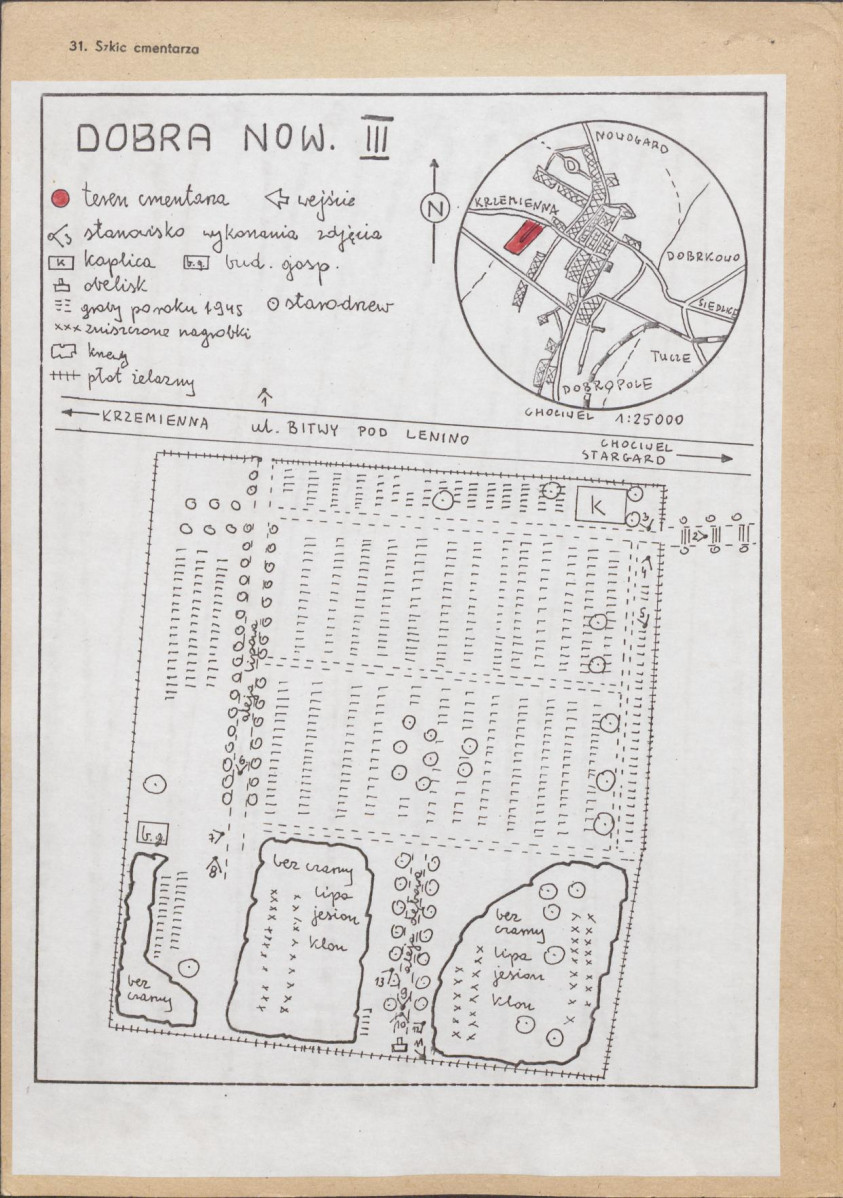 31. Szkic cmentarza
DOBRA NOW. III
teren cmentarza
wejście
stanowisko wykonania zdjęcia
K kaplica
b.g. bud. gosp.
obelisk
groby po roku 1945
starodrzew
xxx zniszczone nagrobki
krzewy
płot żelazny
N
NOWOGARD
KRZEMIENNA
DOBRKOWO
SIEDLICE
TUCZE
DOBROPOLE
CHOCIWEL
1:25000
1
KRZEMIENNA
ul. BITWY POD LENINO
CHOCIWEL
STARGARD
K
3
2
4
5
aleja lipowa
6
b.g.
7
8
bez czarny
lipa
jesion
klon
aleja dębowa
bez
czarny
lipa
jesion
klon
bez
czarny
13
9
10
12